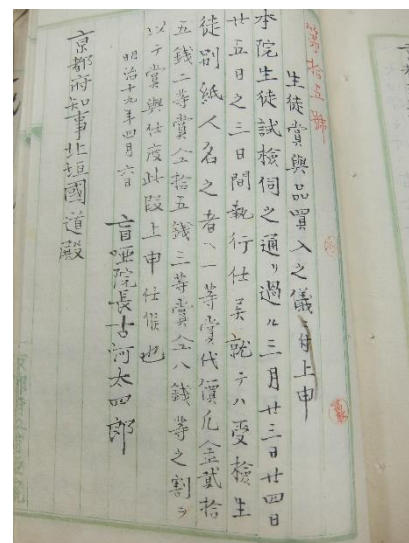 第拾五號
生徒賞與品買入之儀ニ付上申
本院生徒試檢伺之通リ過ル三月廿三日廿四日
廿五日之三日間執行仕候就テハ受檢生
徒別紙人名之者ヘ一等賞代價凡金貳拾
五錢二等賞金拾五錢三等賞金八錢等之割ヲ
以テ賞與仕度此段上申仕候也
明治十九年四月六日
盲啞院長古河太四郎
京都府知事北垣國道殿